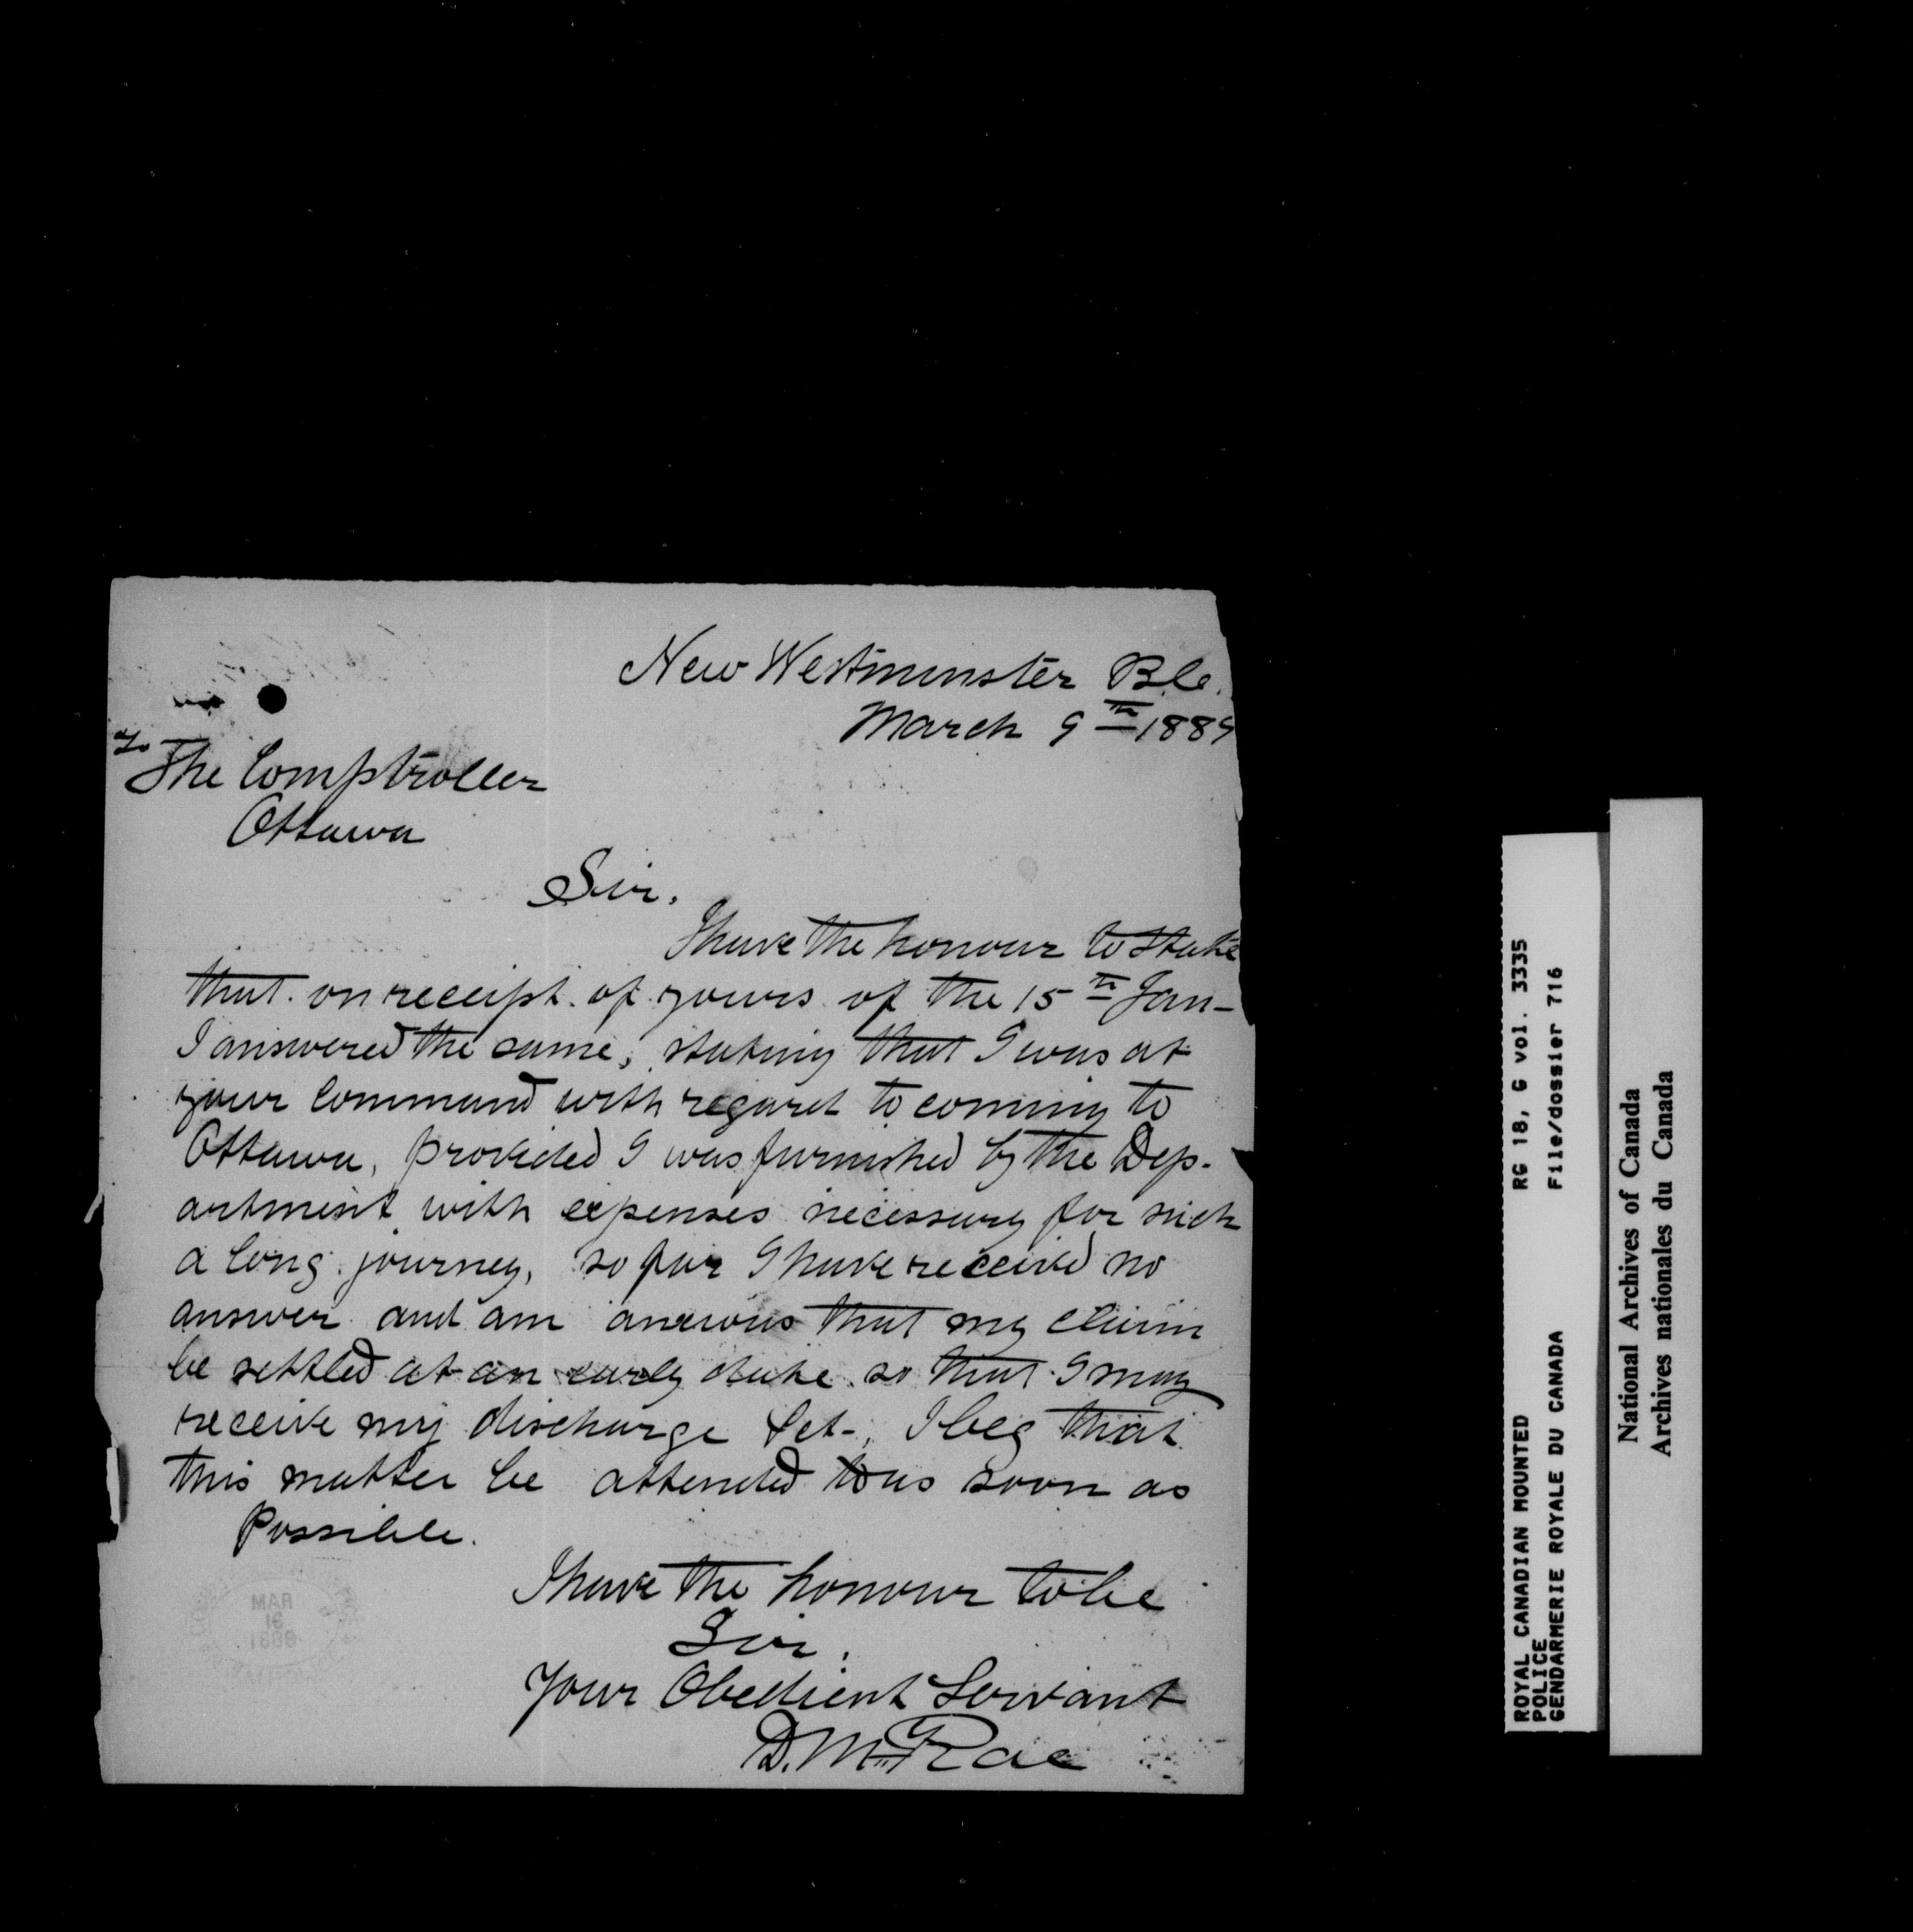 New Westminster B.C.
March 9th 1889
To
The Comptroller
Ottawa
Sir,
I have the honour to state
that on receipt of yours of the 15th Jan-
I answered the same, stating that I was at
your command with regard to coming to
Ottawa, provided I was furnished by the Dep-
artment with expenses necessary for such
a long journey, so far I have received no
answer and am anxious that my claim
be settled at an early date so that I may
receive my discharge &ct-, I beg that
this matter be attended to as soon as
Possible.
I have the honour to be
Sir,
Your Obedient Servant
D. McRae
MAR
16
1889
ROYAL CANADIAN MOUNTED RG 18, G vol. 3335
POLICE
GENDARMERIE ROYALE DU CANADA File/dossier 716
National Archives of Canada
Archives nationales du Canada